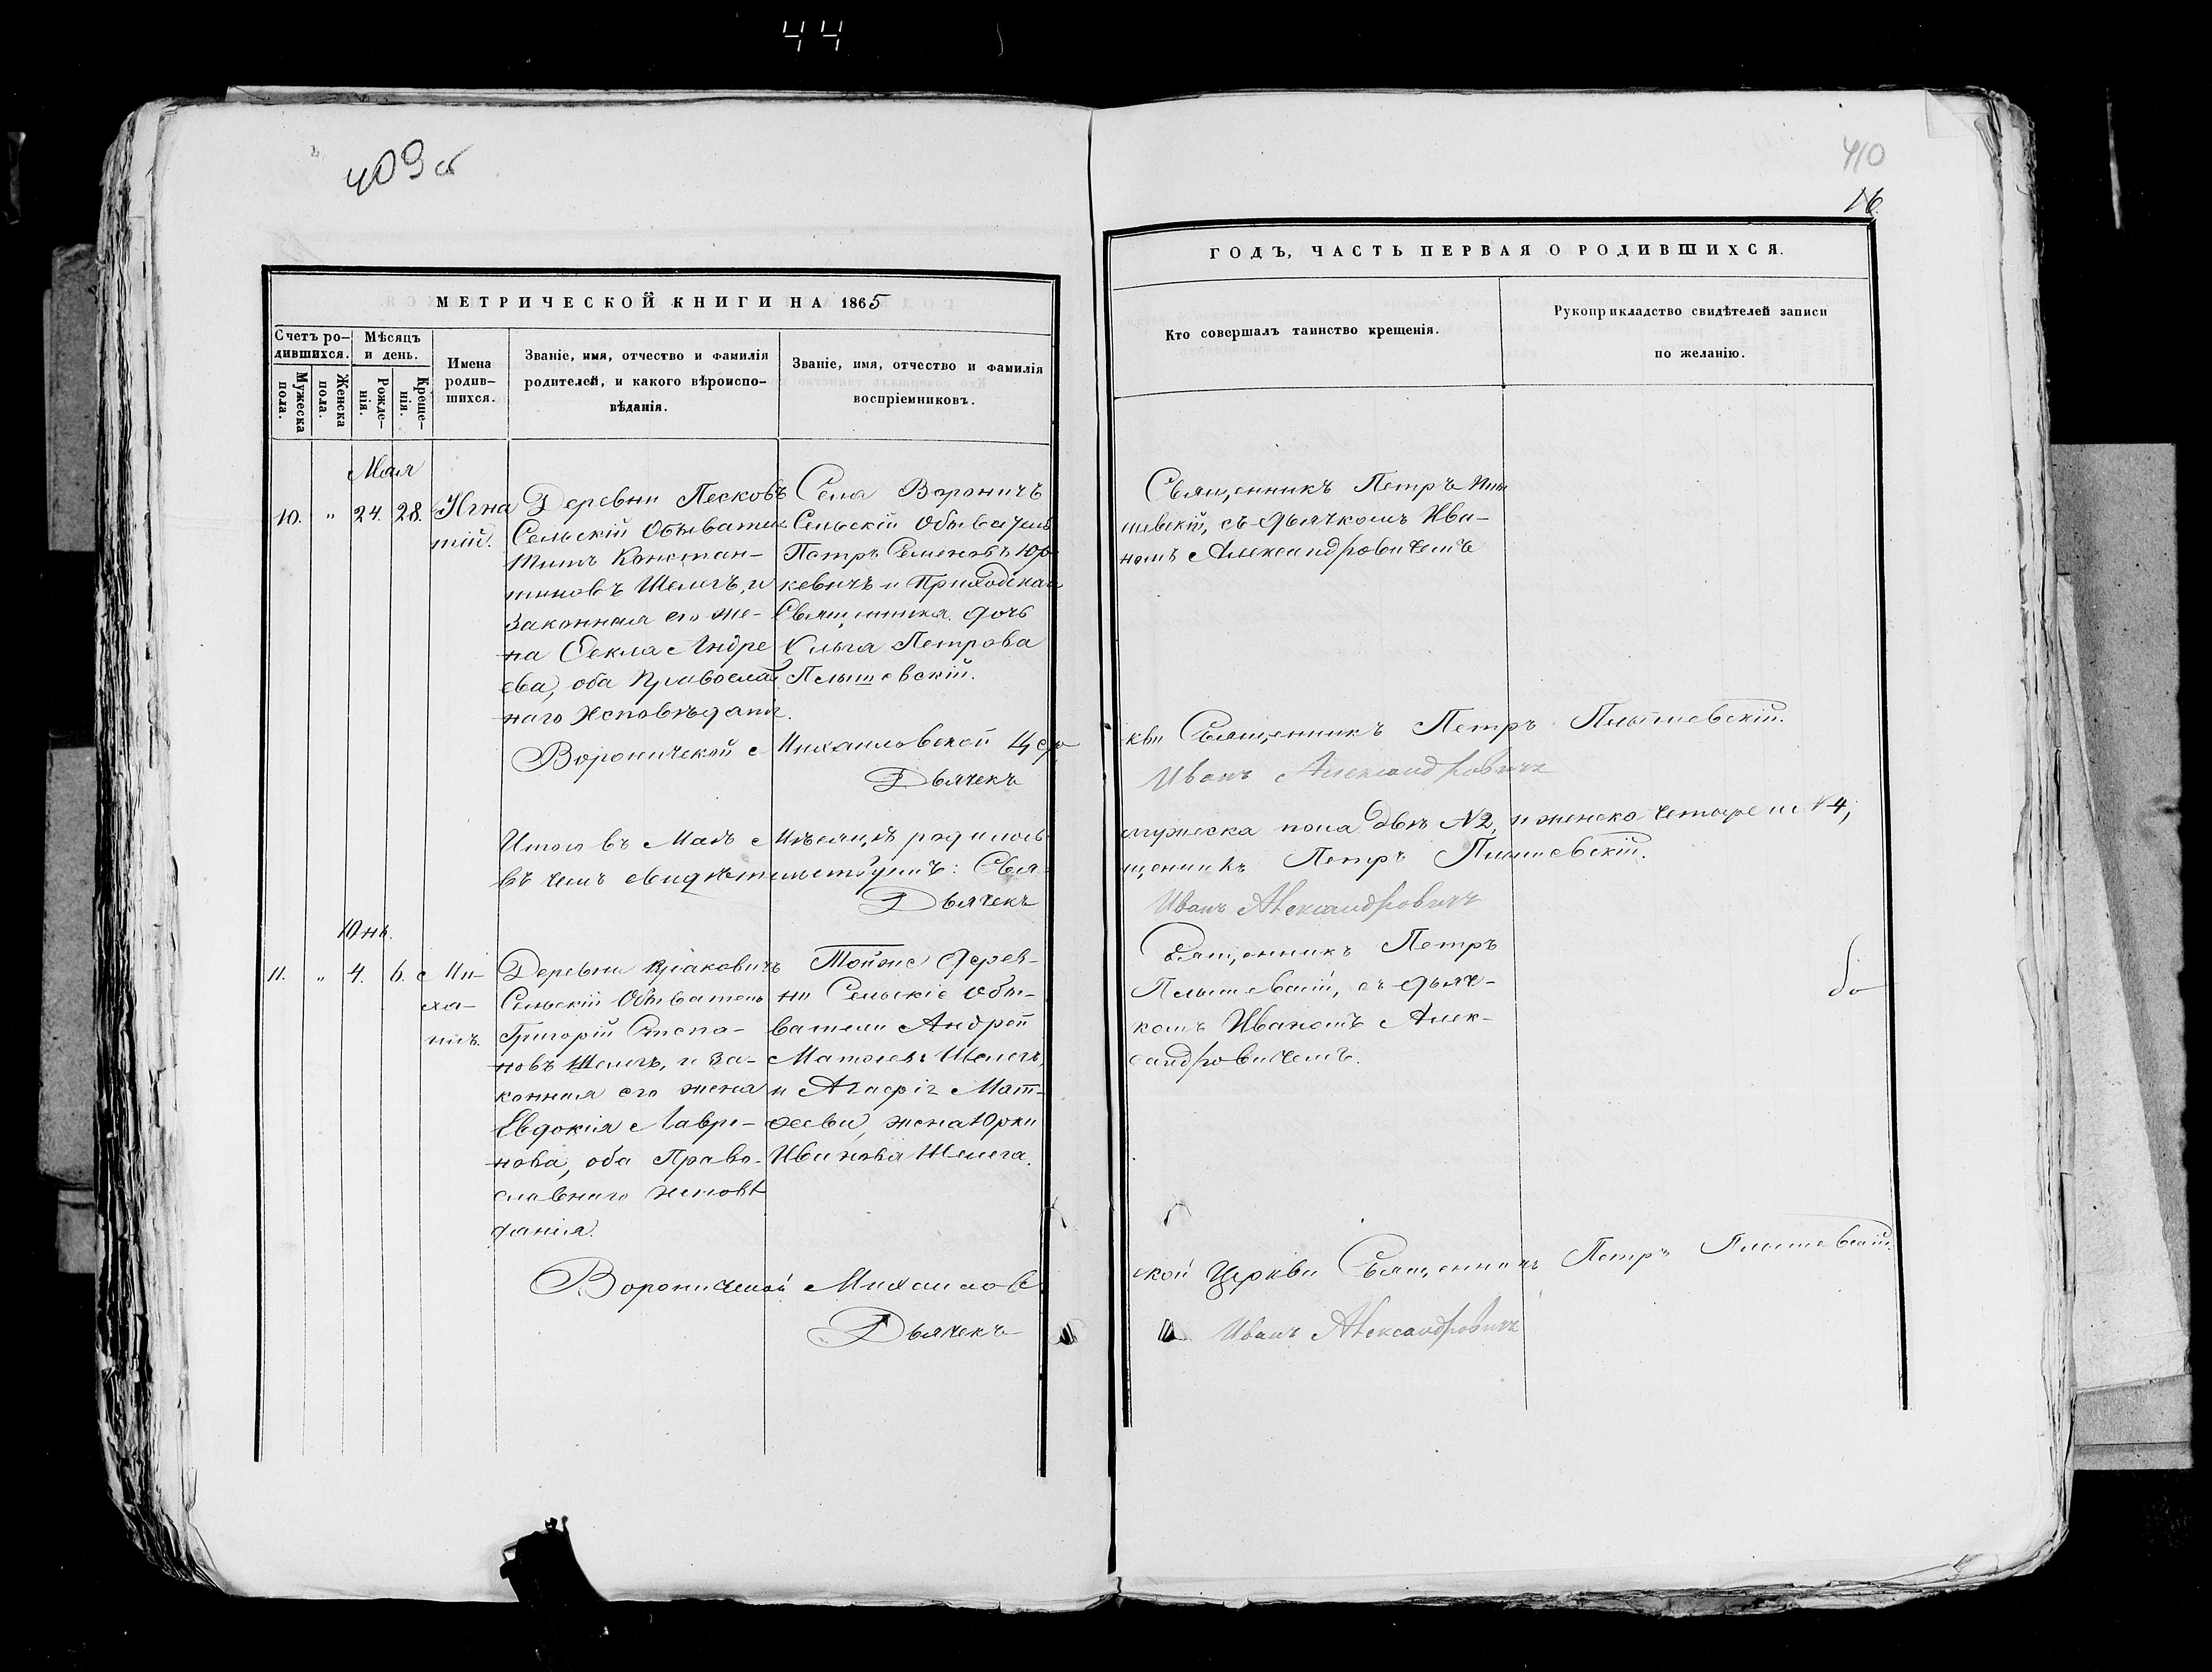 44
409 об
410
16
МЕТРИЧЕСКОЙ КНИГИ НА 1865
ГОДЪ, ЧАСТЬ ПЕРВАЯ О РОДИВШИХСЯ.
Счетъ ро-
дившихся.
Мужеска
пола.
Женска
пола.
Мѣсяцъ
и день.
Рожде-
нія.
Креще-
нія.
Имена
родив-
шихся.
Званіе, имя, отчество и фамилія
родителей, и какого вѣроиспо-
вѣданія.
Званіе, имя, отчество и фамилія
воспріемниковъ.
Кто совершалъ таинство крещенія.
Рукоприкладство свидѣтелей записи
по желанію.
Мая
10. " 24. 28.
Игна
тій.
Деревни Песковъ
Сельскій Обыватель
Констан-
тиновъ Шелегъ, и
законная его же-
на Ѳекла Андре
ева, оба Православ
наго Исповѣданія.
Села Вороничъ
Сельскій Обыватель
Петръ Семеновъ Юр
кевичъ и Приходскаго
Священника дочь
Ольга Петрова
Плышевскій.
Священникъ Петръ Плы
шевскій, съ дьячкомъ Ива-
номъ Александровичемъ
Вороничской Михаиловской Цер
кви Священникъ Петръ Плышевскій.
Дьячекъ Иванъ Александровичъ
Итого въ Маѣ Мѣсяцѣ родилось мужеска пола два №2, и женска четыре №4;
въ чемъ свидѣтельствуемъ: Свя-
щенникъ Петръ Плышевскій.
Дьячекъ Иванъ Александровичъ
Юнь.
11. " 4. 6.
Ми-
ха-
илъ.
Деревни
Сельскій Обыватель
Григорій Степа-
новъ Шелегъ, и за-
конная его жена
Евдокія Лаври-
нова, оба Право-
славнаго исповѣ
данія.
Тойже дерев-
ни Сельскіе Обы-
ватели Андрей
Матѳеевъ Шелегъ,
и Агафія Мат-
ѳеева, жена Юрки
Иванова Шелега.
Священникъ Петръ
Плышевскій, съ дьяч-
комъ Иваномъ Алек-
сандровичемъ.
Вороничской Михаилов
ской Церкви Священникъ Петръ Плышевскій.
Дьячекъ Иванъ Александровичъ